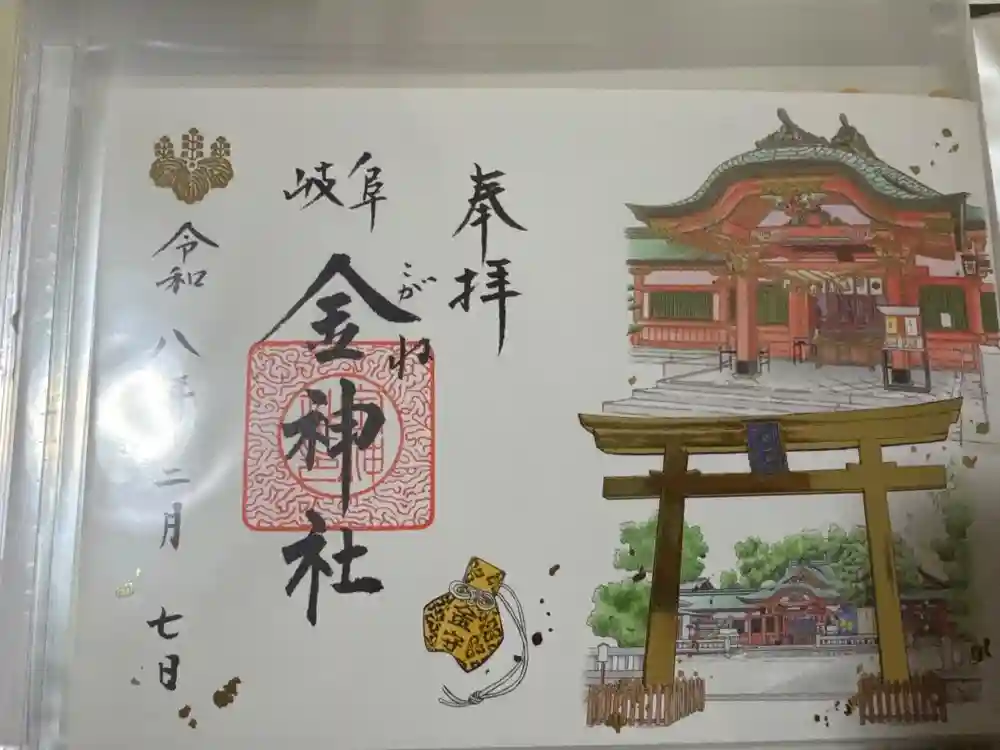 奉拝
岐阜
金神社
こがね
令和八年二月七日
金守